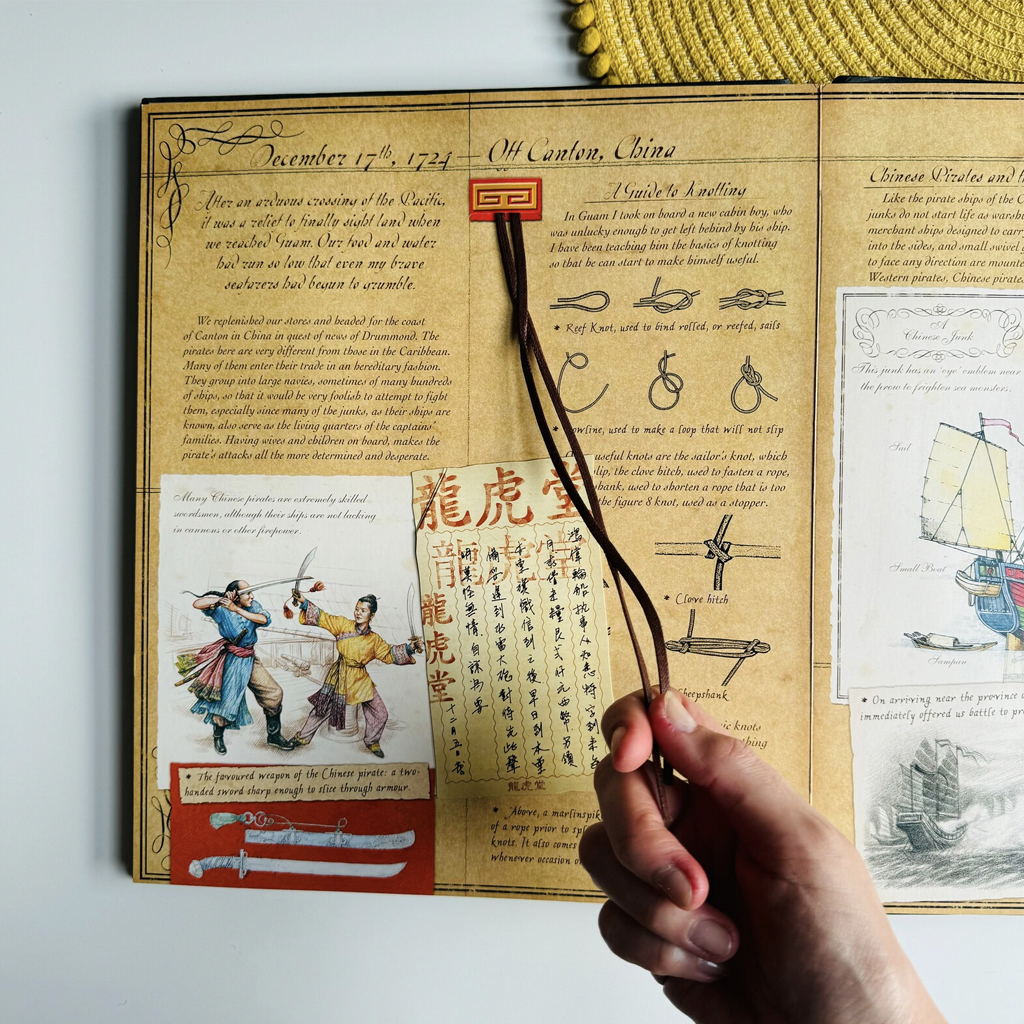 December 17th, 1724 — Off Canton, China
After an arduous crossing of the Pacific,
it was a relief to finally sight land when
we reached Guam. Our food and water
had run so low that even my brave
seafarers had begun to grumble.
We replenished our stores and headed for the coast
of Canton in China in quest of news of Drummond. The
pirates here are very different from those in the Caribbean.
Many of them enter their trade in an hereditary fashion.
They group into large navies, sometimes of many hundreds
of ships, so that it would be very foolish to attempt to fight
them, especially since many of the junks, as their ships are
known, also serve as the living quarters of the captains'
families. Having wives and children on board, makes the
pirate's attacks all the more determined and desperate.
Many Chinese pirates are extremely skilled
swordsmen, although their ships are not lacking
in cannons or other firepower.
* The favoured weapon of the Chinese pirate: a two-
handed sword sharp enough to slice through armour.
龍虎堂
龍虎堂
龍虎堂
十二月五日
龍虎堂
A Guide to Knotting
In Guam I took on board a new cabin boy, who
was unlucky enough to get left behind by his ship.
I have been teaching him the basics of knotting
so that he can start to make himself useful.
* Reef Knot, used to bind rolled, or reefed, sails
* owline, used to make a loop that will not slip
useful knots are the sailor's knot, which
lip, the clove hitch, used to fasten a rope,
hank, used to shorten a rope that is too
he figure 8 knot, used as a stopper.
* Clove hitch
heepshank
ic knots
thing
* Above, a marlinspik
of a rope prior to spl
knots. It also comes
whenever occasion
Chinese Pirates and
Like the pirate ships of the C
junks do not start life as warsh
merchant ships designed to carry
into the sides, and small swivel
to face any direction are mounte
Western pirates, Chinese pirate
A
Chinese Junk
This junk has an 'eye' emblem near
the prow to frighten sea monsters.
Sail
Small Boat
Sampan
* On arriving near the province o
immediately offered us battle to pr